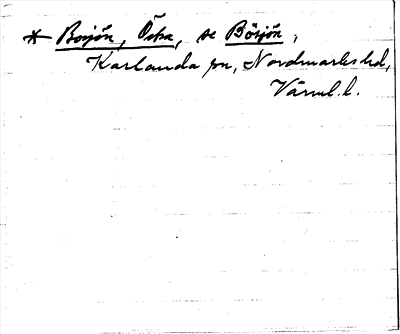 * Borjön, Östra, se Börjön,
Karlanda sn, Nordmarks hd,
Värml. l.